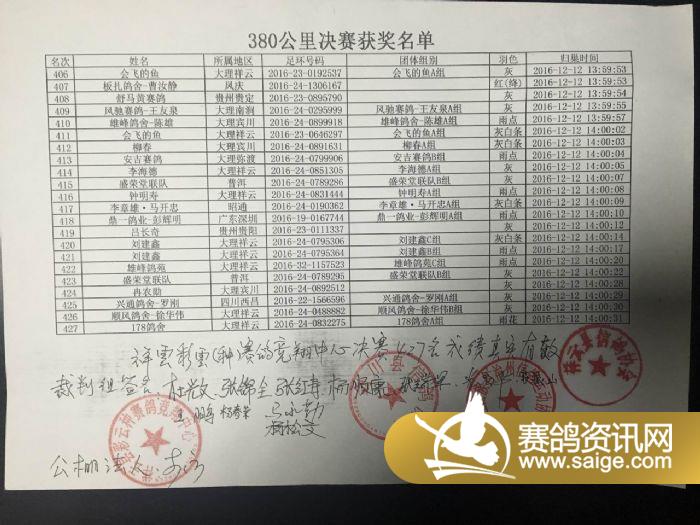 380公里决赛获奖名单
名次 姓名 所属地区 足环号码 团体组别 羽色 归巢时间
406 会飞的鱼 大理祥云 2016-23-0192537 会飞的鱼A组 灰 2016-12-12 13:59:53
407 板扎鸽舍-曹汝静 凤庆 2016-24-1306167 红(绛) 2016-12-12 13:59:53
408 舒马黄赛鸽 贵州贵定 2016-23-0895790 灰 2016-12-12 13:59:54
409 风驰赛鸽-王友泉 大理南涧 2016-24-0295999 风驰赛鸽-王友泉A组 灰 2016-12-12 13:59:55
410 雄峰鸽舍-陈雄 大理宾川 2016-24-0899918 雄峰鸽舍-陈雄A组 雨点 2016-12-12 13:59:57
411 会飞的鱼 大理祥云 2016-23-0646297 会飞的鱼A组 灰白条 2016-12-12 14:00:02
412 柳春 大理宾川 2016-24-0891631 柳春A组 灰白条 2016-12-12 14:00:03
413 安吉赛鸽 大理弥渡 2016-24-0799906 安吉赛鸽B组 雨点 2016-12-12 14:00:04
414 李海德 大理祥云 2016-24-0851305 李海德A组 灰 2016-12-12 14:00:05
415 盛荣堂联队 普洱 2016-24-0789286 盛荣堂联队B组 灰 2016-12-12 14:00:07
416 钟明寿 大理祥云 2016-24-0831444 钟明寿A组 雨点 2016-12-12 14:00:08
417 李章雄·马开忠 昭通 2016-24-0190362 李章雄·马开忠A组 灰 2016-12-12 14:00:09
418 鼎一鸽业-彭辉明 广东深圳 2016-19-0167744 鼎一鸽业-彭辉明A组 雨点 2016-12-12 14:00:10
419 吕长奇 贵州贵阳 2016-23-0111337 灰 2016-12-12 14:00:12
420 刘建鑫 大理祥云 2016-24-0795306 刘建鑫C组 灰白条 2016-12-12 14:00:14
421 刘建鑫 大理祥云 2016-24-0795364 刘建鑫B组 雨点 2016-12-12 14:00:16
422 雄峰鸽苑 大理祥云 2016-32-1157523 雄峰鸽苑C组 雨点 2016-12-12 14:00:20
423 盛荣堂联队 普洱 2016-24-0789295 盛荣堂联队B组 灰 2016-12-12 14:00:22
424 冉农勋 大理宾川 2016-24-0892512 灰 2016-12-12 14:00:28
425 兴通鸽舍-罗刚 四川西昌 2016-22-1566596 兴通鸽舍-罗刚A组 灰 2016-12-12 14:00:29
426 顺风鸽舍-徐华伟 大理祥云 2016-24-0488882 顺风鸽舍-徐华伟B组 灰 2016-12-12 14:00:30
427 178鸽舍 大理祥云 2016-24-0832277 178鸽舍A组 雨花 2016-12-12 14:00:31
祥云彩云(种)赛鸽竞翔中心决赛427名成绩真实有效
裁判组签名
公棚法人
赛鸽资讯网
www.saige.com